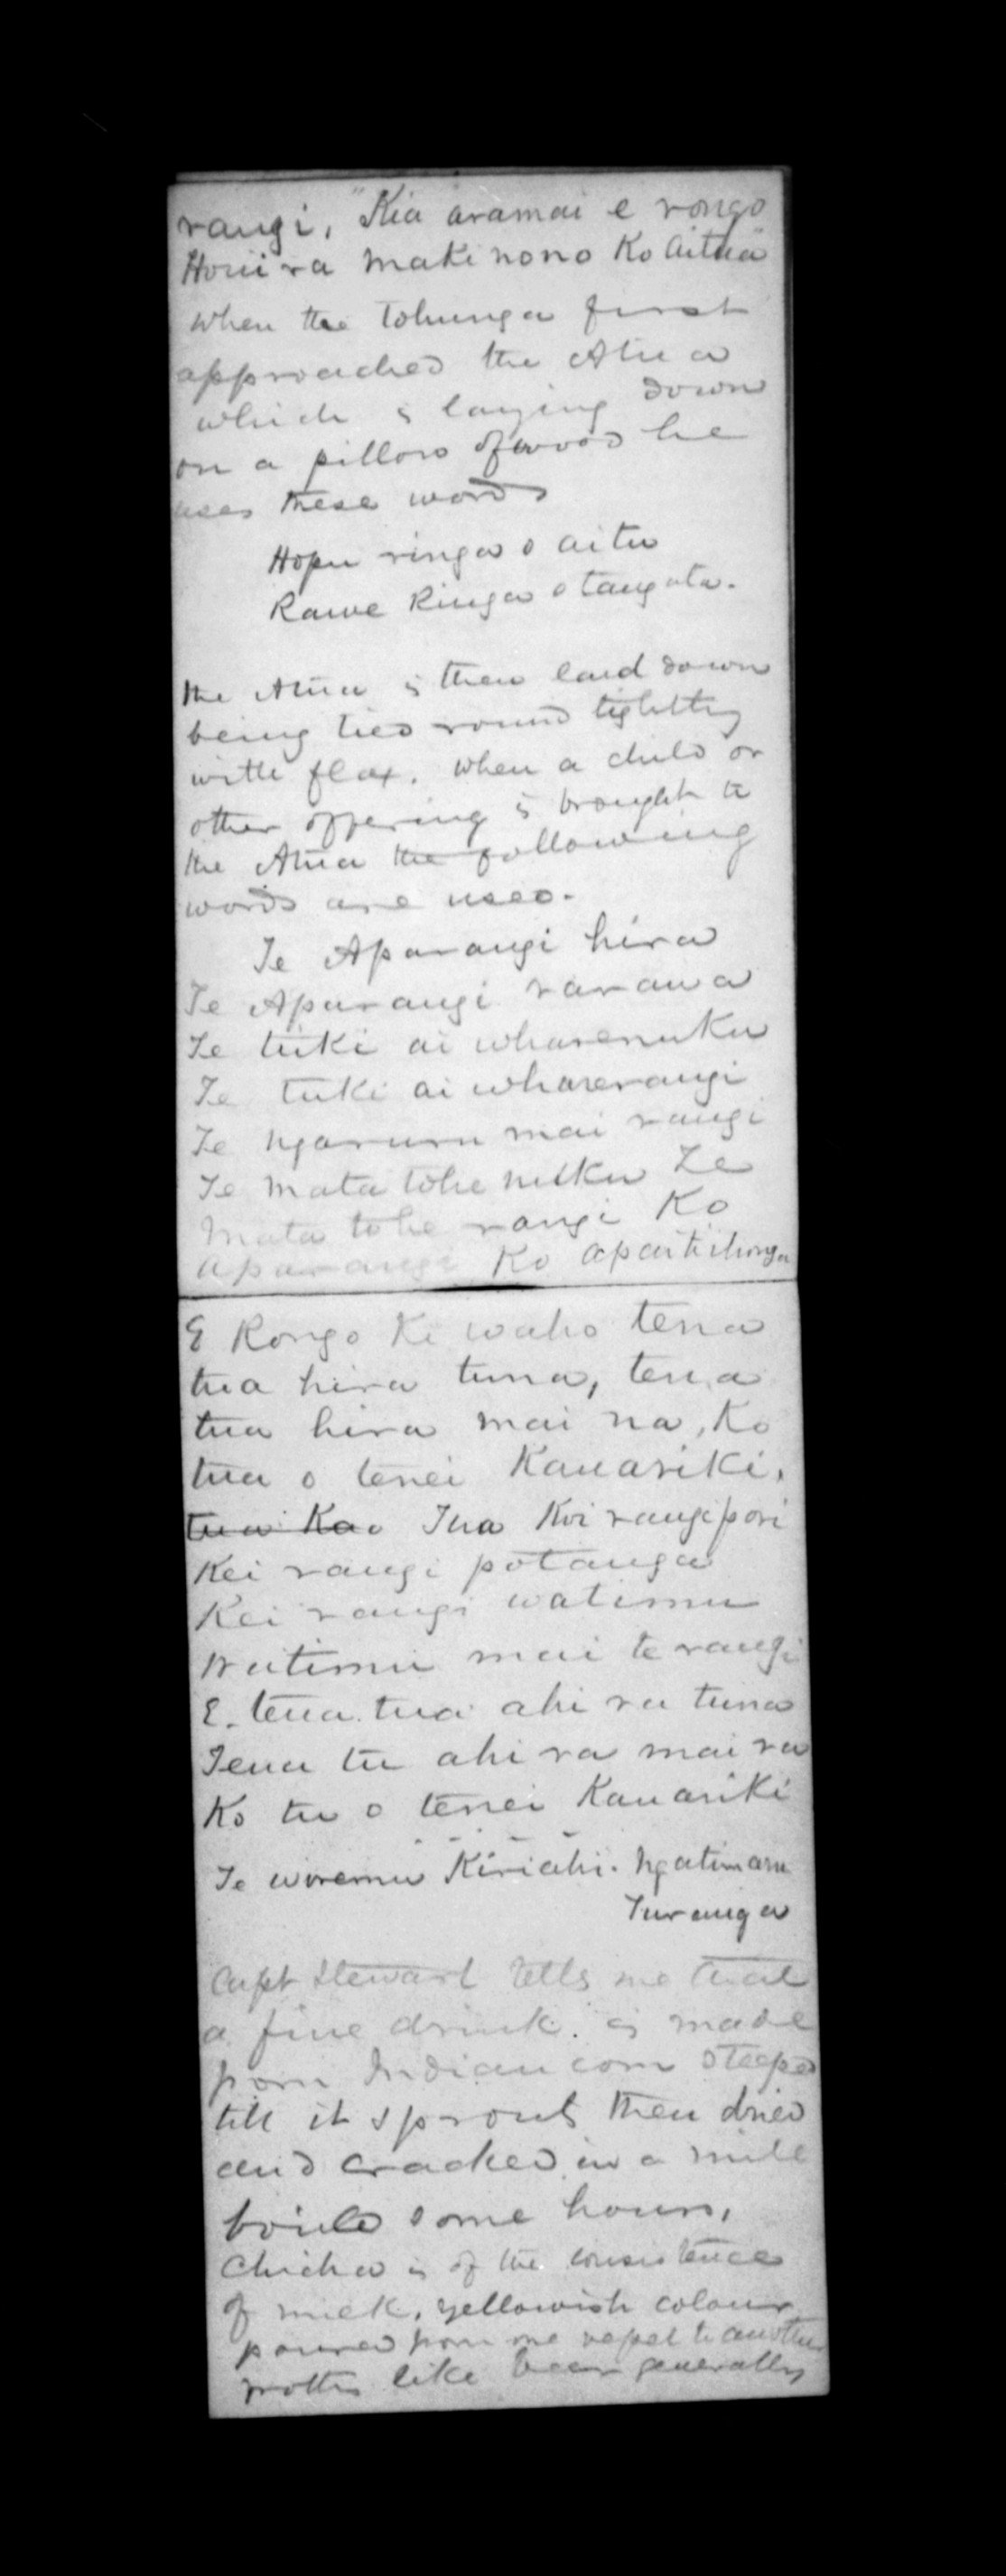 rangi, "Kia aramai e rongo
Houi ra maki nono Ko Aitua"
When the Tohunga first
approached the Atua
which is laying down
on a pillow of wood he
uses these words
Hopu ringa o aitu
Rawe Ringa o tangata.
the Atua is then laid down
being tied round tightly
with flax. When a child or
other offering is brought to
the Atua the following
words are used.
Te Aparangi hira
Te Aparangi rarawa
Te tuki ai wharenuku
Te tuki ai wharerangi
Te ngaruru mai rangi
Te mata tohe nuku Te
mata tohe rangi Ko
aparangi Ko apaitihonga
E Rongo Ki waho tena
tua hira tuna, tena
tua hira mai na, Ko
tua o tenei Kauariki.
tua Kao Tua Koi rangipori
Kei rangi potanga
Kei rangi watimu
Watimu mai te rangi
E. tena tua ahi ra tuna
Tena tu ahi ra mai ra
Ko tu o tenei Kauariki
Te woremu Kiriahi. Ngatimaru
Turanga
Capt Stewart tells me that
a fine drink is made
from Indian corn steeped
till it sprouts then dried
and cracked in a mill
boiled some hours,
Chicha is of the consistence
of milk, yellowish colour
poured from one vessel to another
froths like beer generally